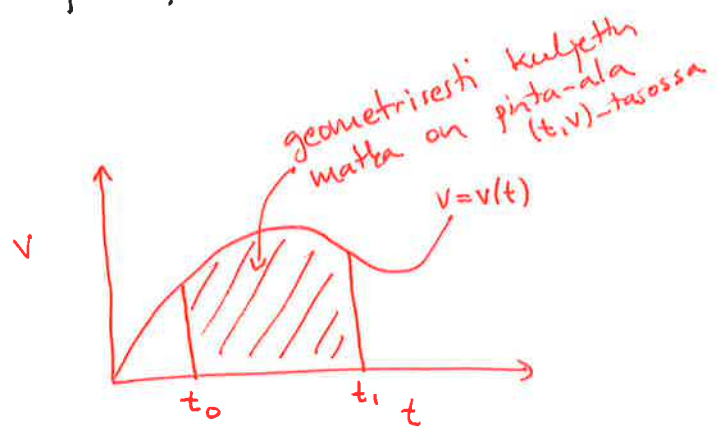 geometrisesti kuljettu
matka on pinta-ala
(t,v)-tasossa
v=v(t)
v
t₀
t₁
t